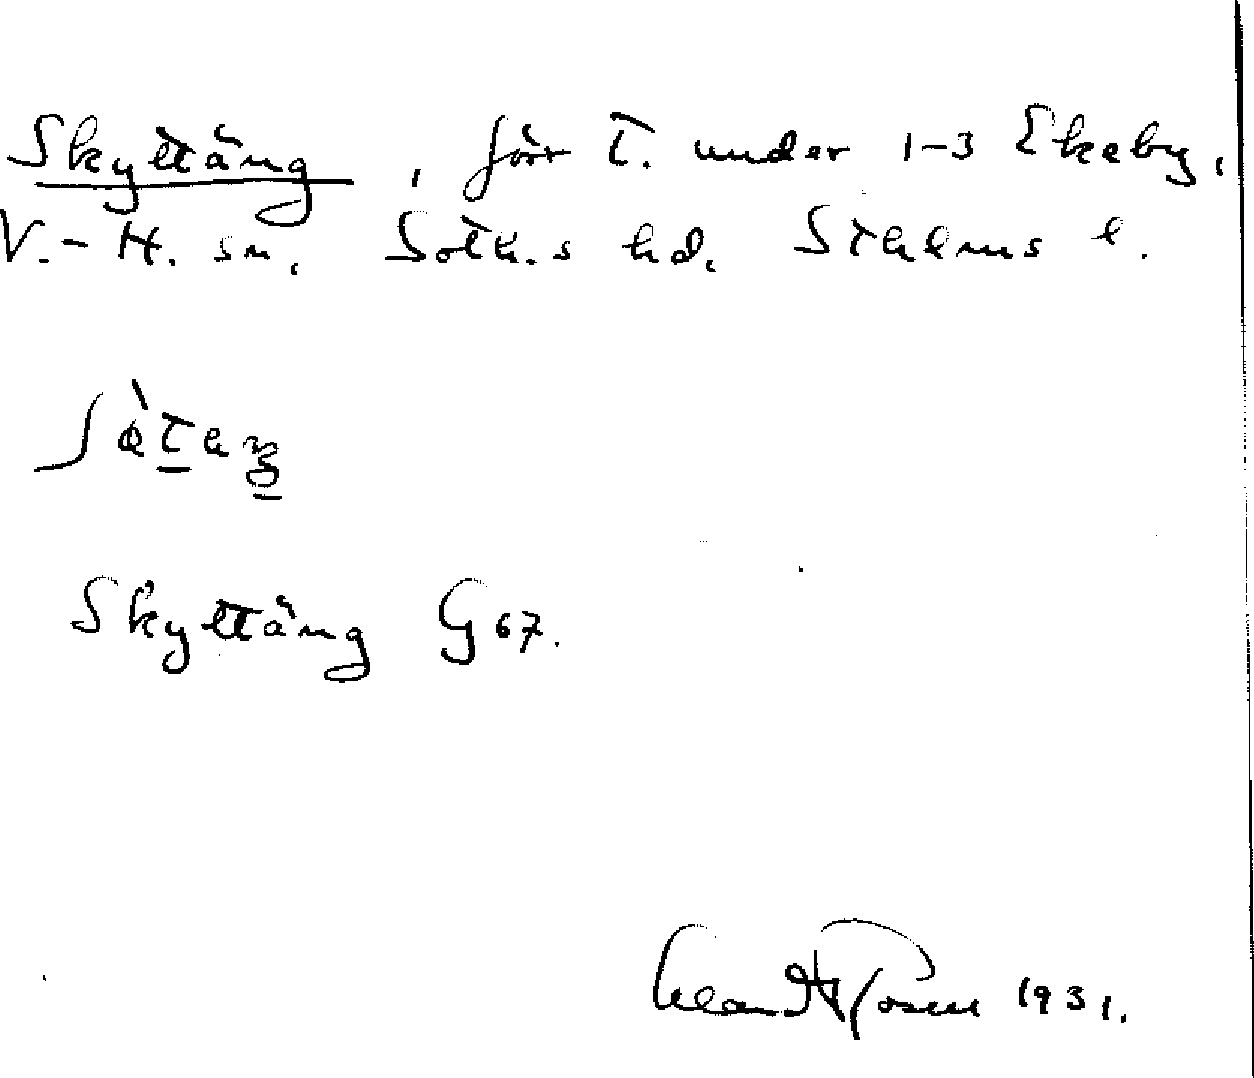 Skyttäng, förr t. under 1-3 Ekeby,
V.-H. sn, Soth.s hd. Sthlms l.
Skyttäng G 67.
1931.